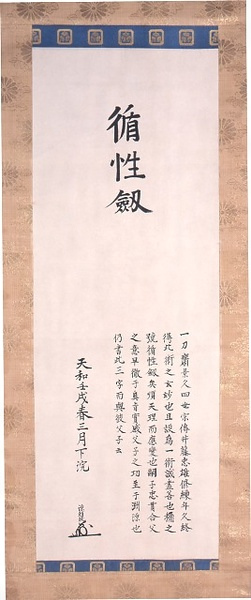 循性劔
一刀齋景久四世宗傳井藤忠雄修練年久終
得此術之玄妙也且設為一術誠盡善也標之
號循性劔矣順天理而應變也嗣子忠貫合父
之意早徹于真旨實感父子之功至于淵源也
仍書此三字而與彼父子云
天和壬戌春三月下浣